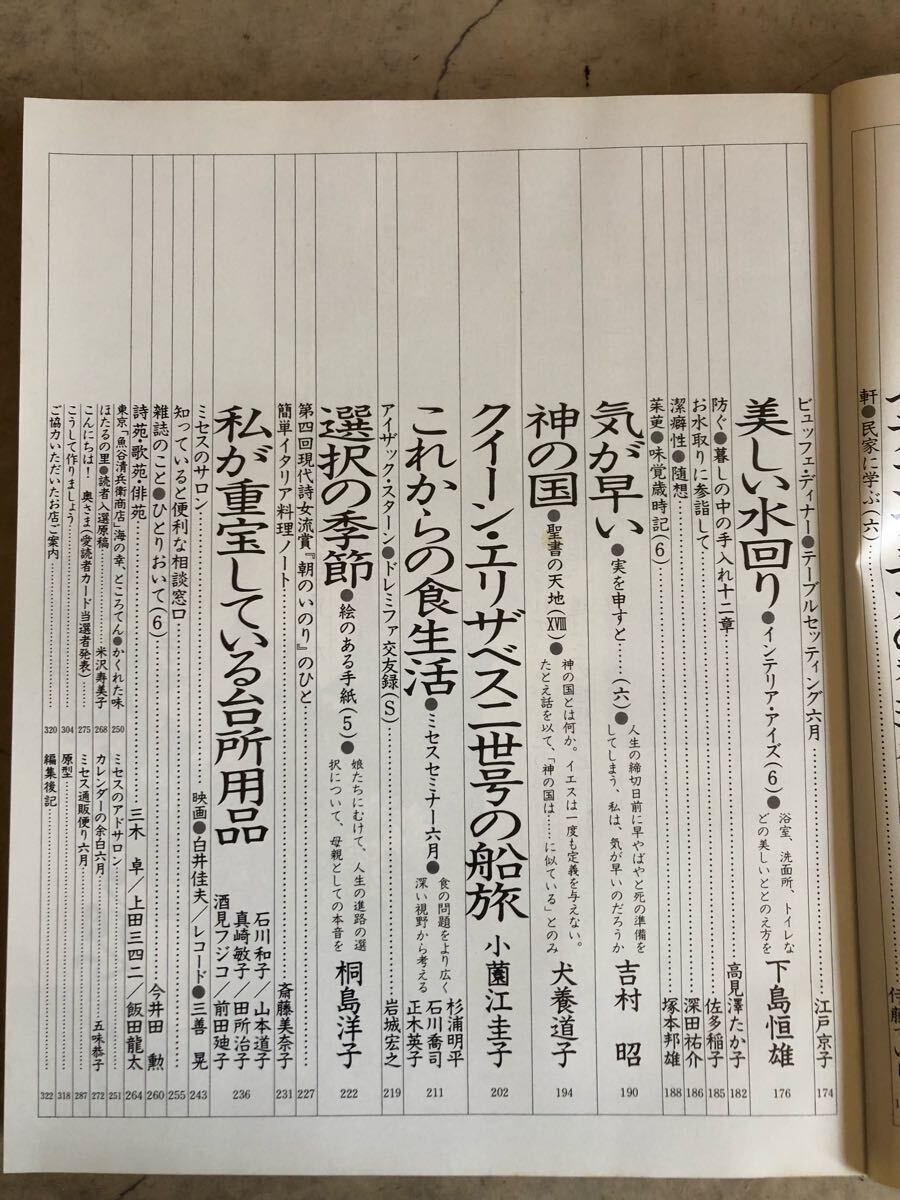 軒●民家に学ぶ(六)
ビュッフェ・ディナー●テーブルセッティング六月……江戸京子 174
美しい水回り●インテリア・アイズ(6)●浴室、洗面所、トイレな
どの美しいととのえ方を 下島恒雄 176
防ぐ●暮しの中の手入れ十二章……高見澤たか子 182
お水取りに参詣して……佐多稲子 185
潔癖性●随想……深田祐介 186
茱萸●味覚歳時記(6)……塚本邦雄 188
気が早い●実を申すと……(六)●人生の締切日前に早やばやと死の準備を
してしまう、私は、気が早いのだろうか 吉村 昭 190
神の国●聖書の天地(XVIII)●神の国とは何か。イエスは一度も定義を与えない。
たとえ話を以て、「神の国は……に似ている」とのみ 犬養道子 194
クイーン・エリザベス二世号の船旅 小薗江圭子 202
これからの食生活●ミセスセミナー六月●食の問題をより広く
深い視野から考える 杉浦明平
石川喬司
正木英子 211
アイザック・スターン●ドレミファ交友録(S)……岩城宏之 219
選択の季節●絵のある手紙(5)●娘たちにむけて、人生の進路の選
択について、母親としての本音を 桐島洋子 222
第四回現代詩女流賞『朝のいのり』のひと…… 227
簡単イタリア料理ノート……斎藤美奈子 231
私が重宝している台所用品 石川和子/山本道子
真崎敏子/田所治子
酒見フジコ/前田廸子 236
ミセスのサロン……映画●白井佳夫/レコード●三善 晃 243
知っていると便利な相談窓口…… 255
雑誌のこと●ひとりおいて(6)……今井田 勲 260
詩苑・歌苑・俳苑……三木 卓/上田三四二/飯田龍太 264
東京「魚谷清兵衛商店」海の幸、ところてん●かくれた味 250
ミセスのアドサロン…… 251
ほたるの里●読者入選原稿……米沢寿美子 268
カレンダーの余白六月……五味恭子 272
こんにちは! 奥さま(愛読者カード当選者発表)…… 275
ミセス通販便り六月…… 287
こうして作りましょう…… 304
原型…… 318
ご協力いただいたお店ご案内…… 320
編集後記…… 322